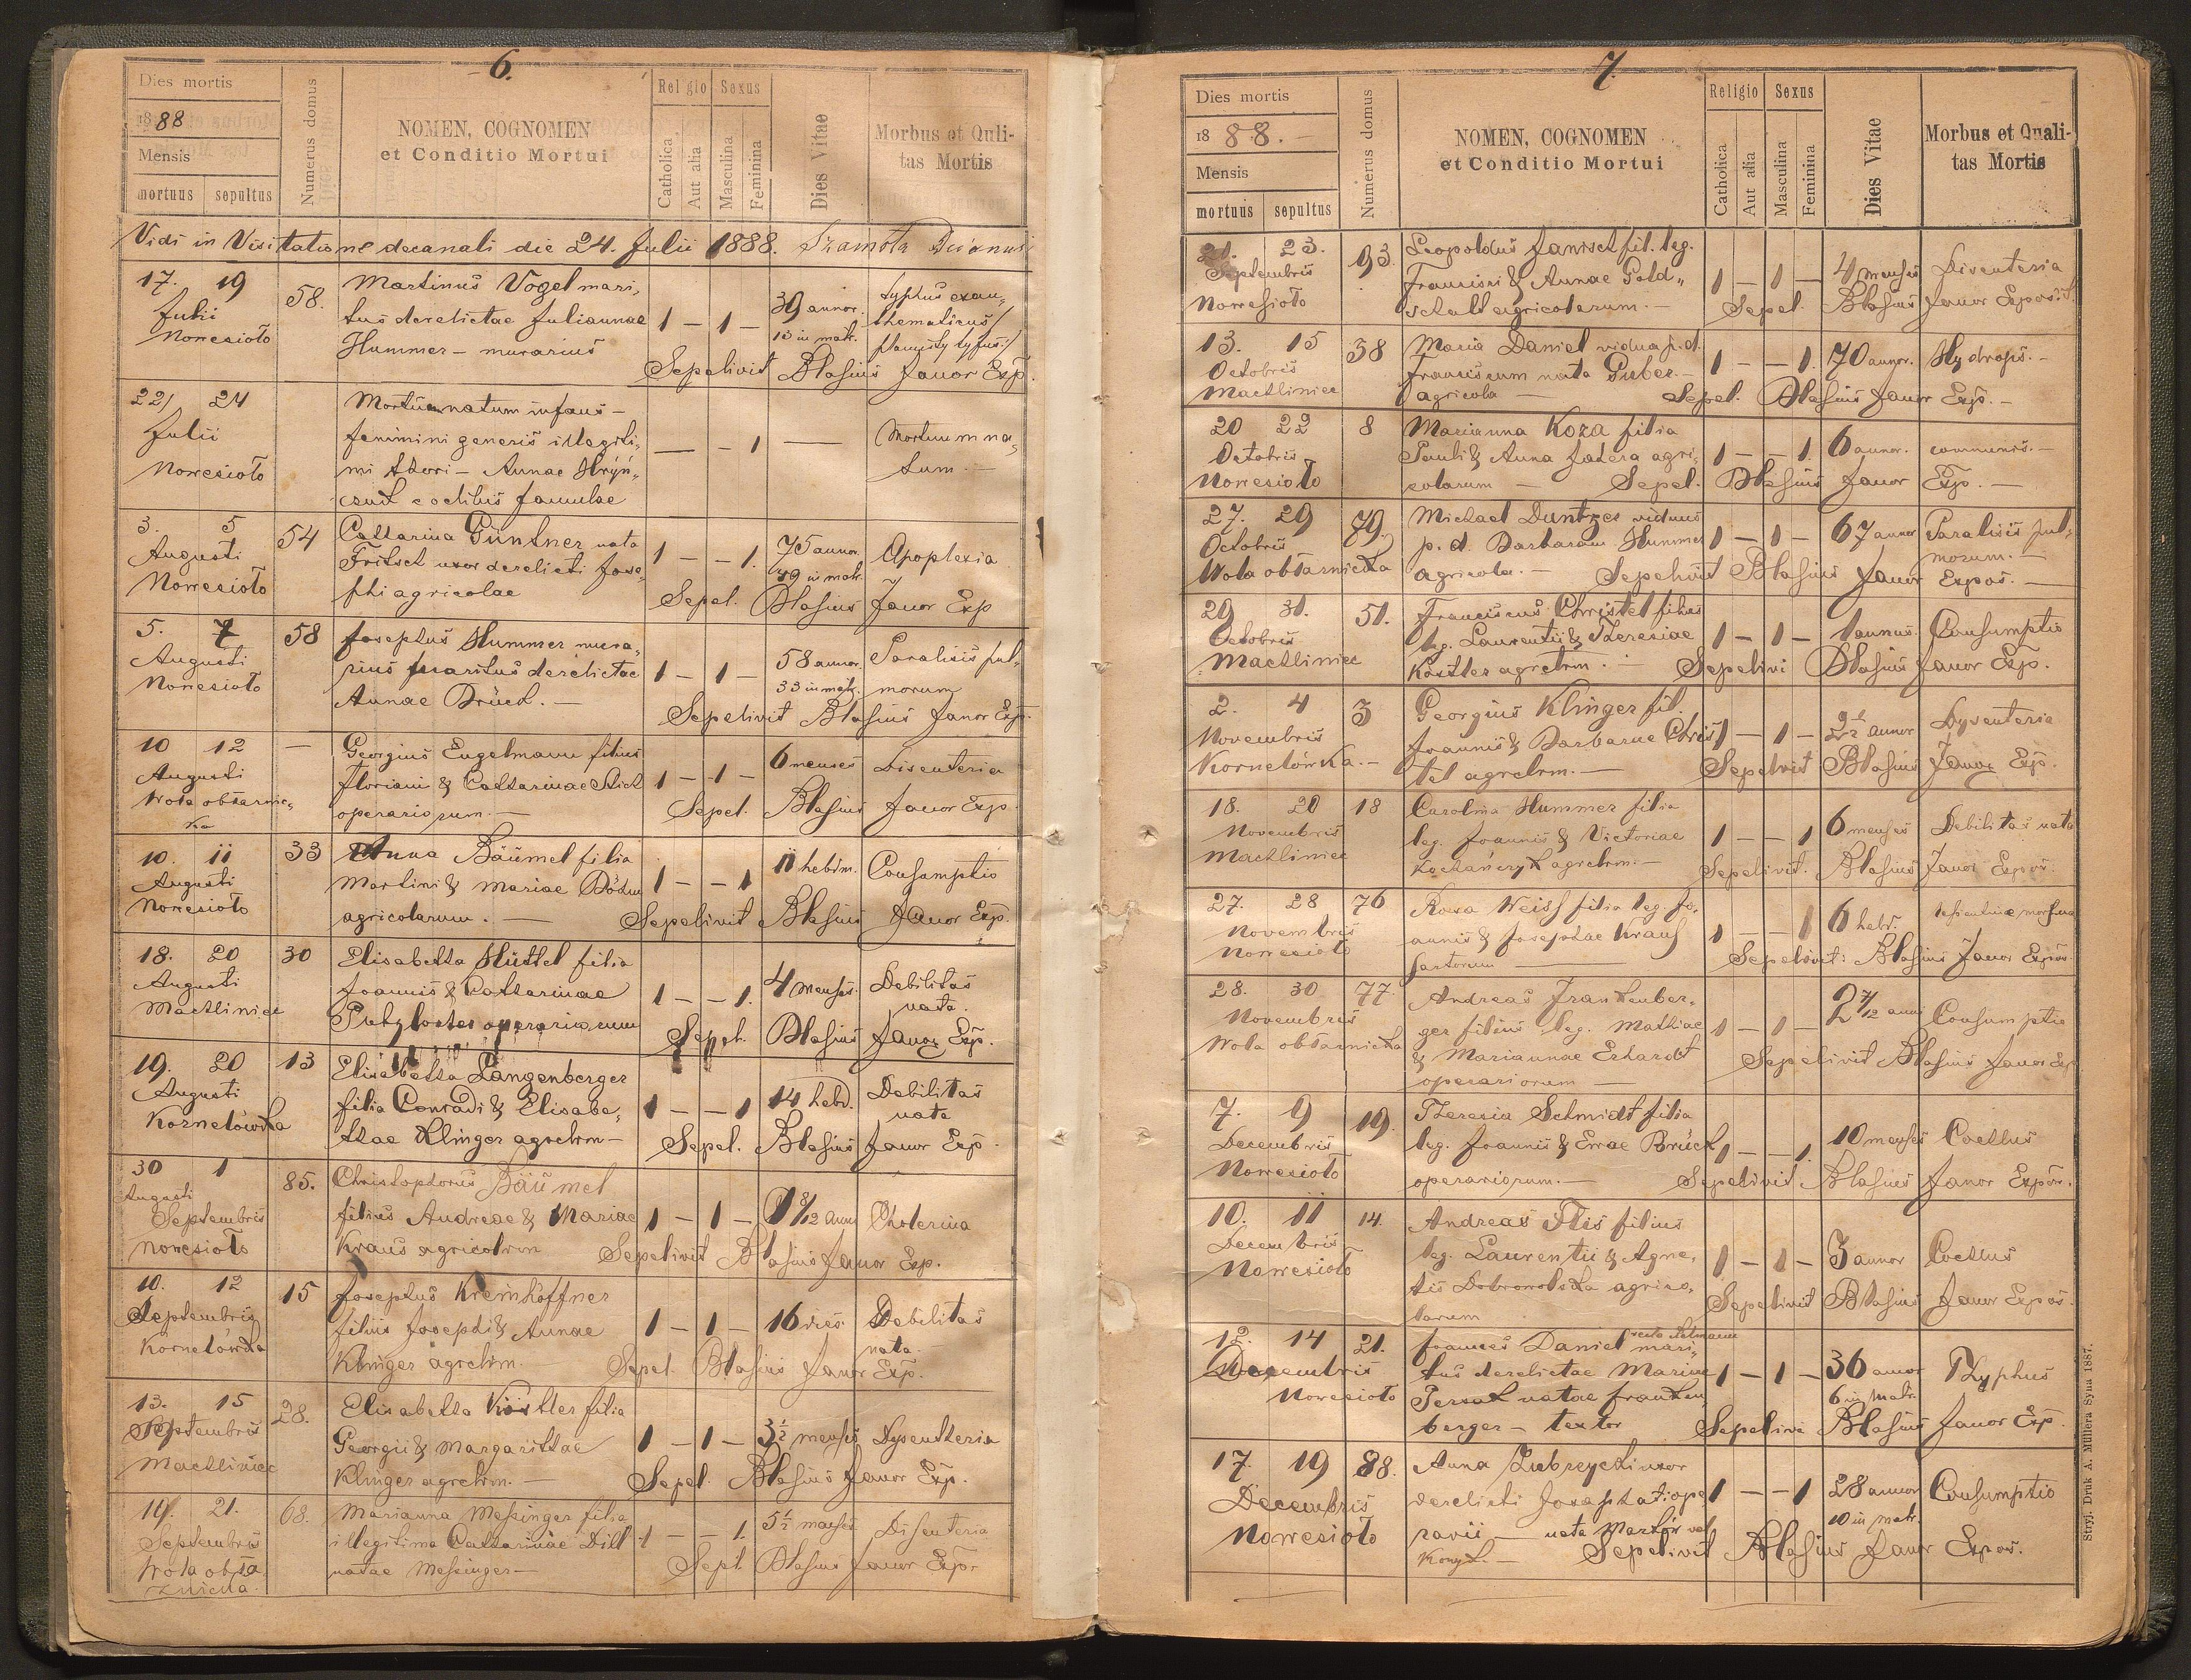 6.
Dies mortis
1888
Mensis
mortuus sepultus
Numerus domus
NOMEN, COGNOMEN
et Conditio Mortui
Religio
Catholica
Aut alia
Sexus
Masculina
Feminina
Dies Vitae
Morbus et Quli-
tas Mortis
Vidi in Visitatione decanali die 24. Julii 1888. Szamota Decanus
17. 19
Julii
Nowesioło
58.
Martinus Vogel mari-
tus derelictae Juliannae
Hummer – murarius
1 – 1 –
39 annor.
13 in matr.
typhus exan-
thematicus
plamisty tyfus
Sepelivit Blasius Janor Exp.
22 24
Julii
Nowesioło
Mortuumnatum infans –
feminini generis illegiti-
mi thori – Annae Hryń-
czuk coelibis famulae
— – 1
Mortuum na-
tum. –
3. 5
Augusti
Nowesioło
54
Catharina Güntner nata
Fritsch uxor derelicti Jose-
phi agricolae
1 – – 1.
75 annor.
49 in matr.
Apoplexia
Sepel. Blasius Janor Exp
5. 7
Augusti
Nowesioło
58
Josephus Hummer mura-
rius maritus derelictae
Annae Brück. –
1 – 1 –
58 annor.
33 in matr.
Paralisis pul-
morum
Sepelivit Blasius Janor Exp.
10 12
Augusti
Wola obłaznic-
ka
—
Georgius Engelmann filius
Floriani & Catharinae Stich
operariorum. –
1 – 1 –
6 menses
Disenteria
Sepel. Blasius Janor Exp.
10. 11
Augusti
Nowesioło
33
Anna Bäumel filia
Martini & Mariae Böhm
agricolarum. –
1 – – 1
11 hebdm.
Consumptio
Sepelivit Blasius Janor Exp.
18. 20
Augusti
Machliniec
30
Elisabetha Hüttel filia
Joannis & Catharinae
operariorum
1 – – 1.
4 menses.
Debilitas
nata.
Sepel. Blasius Janor Exp.
19. 20
Augusti
Kornelówka
13
Elisabetha Langenberger
filia Conradi & Elisabe-
thae Klinger agrclrm –
1 – – 1
14 hebd.
Debilitas
nata
Sepel. Blasius Janor Exp.
30 1
Augusti
Septembris
Nowesioło
85.
Christophorus Bäumel
filius Andreae & Mariae
Kraus agricolrm
1 – 1 –
1 8/12 anni
Cholerina
Sepelivit Blasius Janor Exp.
10. 12
Septembris
Kornelówka
15
Josephus Kreinhöffner
filius Josephi & Annae
Klinger agrclrm. –
1 – 1 –
16 dies.
Debilitas
nata. –
Sepel. Blasius Janor Exp.
13. 15
Septembris
Machliniec
28.
Elisabetha Köstler filia
Georgii & Margarithae
Klinger agrclrm. –
1 – 1 –
3½ menses
Dysentheria
Sepel. Blasius Janor Exp.
19. 21.
Septembris
Wola obła-
znicka.
68.
Marianna Messinger filia
illegitima Catharinae Dill
natae Messinger –
1 – – 1.
5½ menses
Disenteria
Sepel. Blasius Janor Expo.
7.
Dies mortis
1888. –
Mensis
mortuus sepultus
Numerus domus
NOMEN, COGNOMEN
et Conditio Mortui
Religio
Catholica
Aut alia
Sexus
Masculina
Feminina
Dies Vitae
Morbus et Quali-
tas Mortis
21. 23.
Septembris
Nowesioło
93.
Leopoldus Janisch fil. leg.
Francisci & Annae Gold-
schalt agricolarum –
1 – 1 –
4 menses
Disenteria
Sepel. Blasius Janor Exposit.
13. 15
Octobris
Machliniec
38
Maria Daniel vidua p. d.
Franciscum nata Guber. –
agricola –
1 – – 1.
70 annor.
Hydrops. –
Sepel. Blasius Janor Exp. –
20 22
Octobris
Nowesioło
8
Marianna Koza filia
Pauli & Anna Jadera agri-
colarum –
1 – – 1.
6 annor.
communis. –
Sepel. Blasius Janor Exp. –
27. 29
Octobris
Wola obłaznicka
79.
Michael Duntzer viduus
p. d. Barbaram Hummer
agricola. –
1 – 1 –
67 annor
Paralisis pul-
morum. –
Sepelivit Blasius Janor Expos. –
29 31.
Octobris
Machliniec
51.
Franciscus Christel filius
leg. Laurentii & Theresiae
Köstler agrclrm. –
1 – 1 –
1 annus.
Consumptio
Sepelivi Blasius Janor Exp.
2. 4
Novembris
Kornelówka. –
3
Georgius Klinger fil.
Joannis & Barbarae Chris-
tel agrclrm. –
1 – 1 –
2½ annor
Dysenteria
Sepelivit Blasius Janor Exp.
18. 20
Novembris
Machliniec
18
Carolina Hummer filia
leg. Joannis & Victoriae
Kochańczyk agrclrm. –
1 – – 1
6 menses
Debilitas nata
Sepelivit. Blasius Janor Expos.
27. 28
Novembris
Nowesioło
76
Rosa Weiss filia leg. Jo-
annis & Josephae Kraus
sartorum –
1 – – 1
6 hebr.
Sepelivit: Blasius Janor Expos.
28. 30
Novembris
Wola obłaznicka
77.
Andreas Frankenber-
ger filius leg. Mathiae
& Mariannae Erhardt
operariorum –
1 – 1 –
2 7/12 anni
Consumptio
Sepelivit Blasius Janor Exp
7. 9
Decembris
Nowesioło
19.
Theresia Schmidt filia
leg. Joannis & Evae Brück
operariorum. –
1 – – 1.
10 menses
Coctlus
Sepelivit Blasius Janor Expos.
10. 11
Decembris
Nowesioło
14.
Andreas Flis filius
leg. Laurentii & Agne-
tis Dobrowolska agrico-
larum
1 – 1 –
3 annor
Coctlus
Sepelivit Blasius Janor Expos.
12. 14
Decembris
Nowesioło
21.
Joannes Daniel mari-
tus derelictae Mariae
natae Franken-
berger – textor
1 – 1 –
36 annor
6 in matr.
Thyphus
Sepelivi Blasius Janor Exp.
17. 19
Decembris
Nowesioło
88.
Anna Zubrzycki uxor
derelicti Josaphati ope-
rarii – nata
1 – – 1
28 annor
10 in matr.
Consumptio
Sepelivit Blasius Janor Expos.
Stryj. Druk A. Müllera Syna 1887.